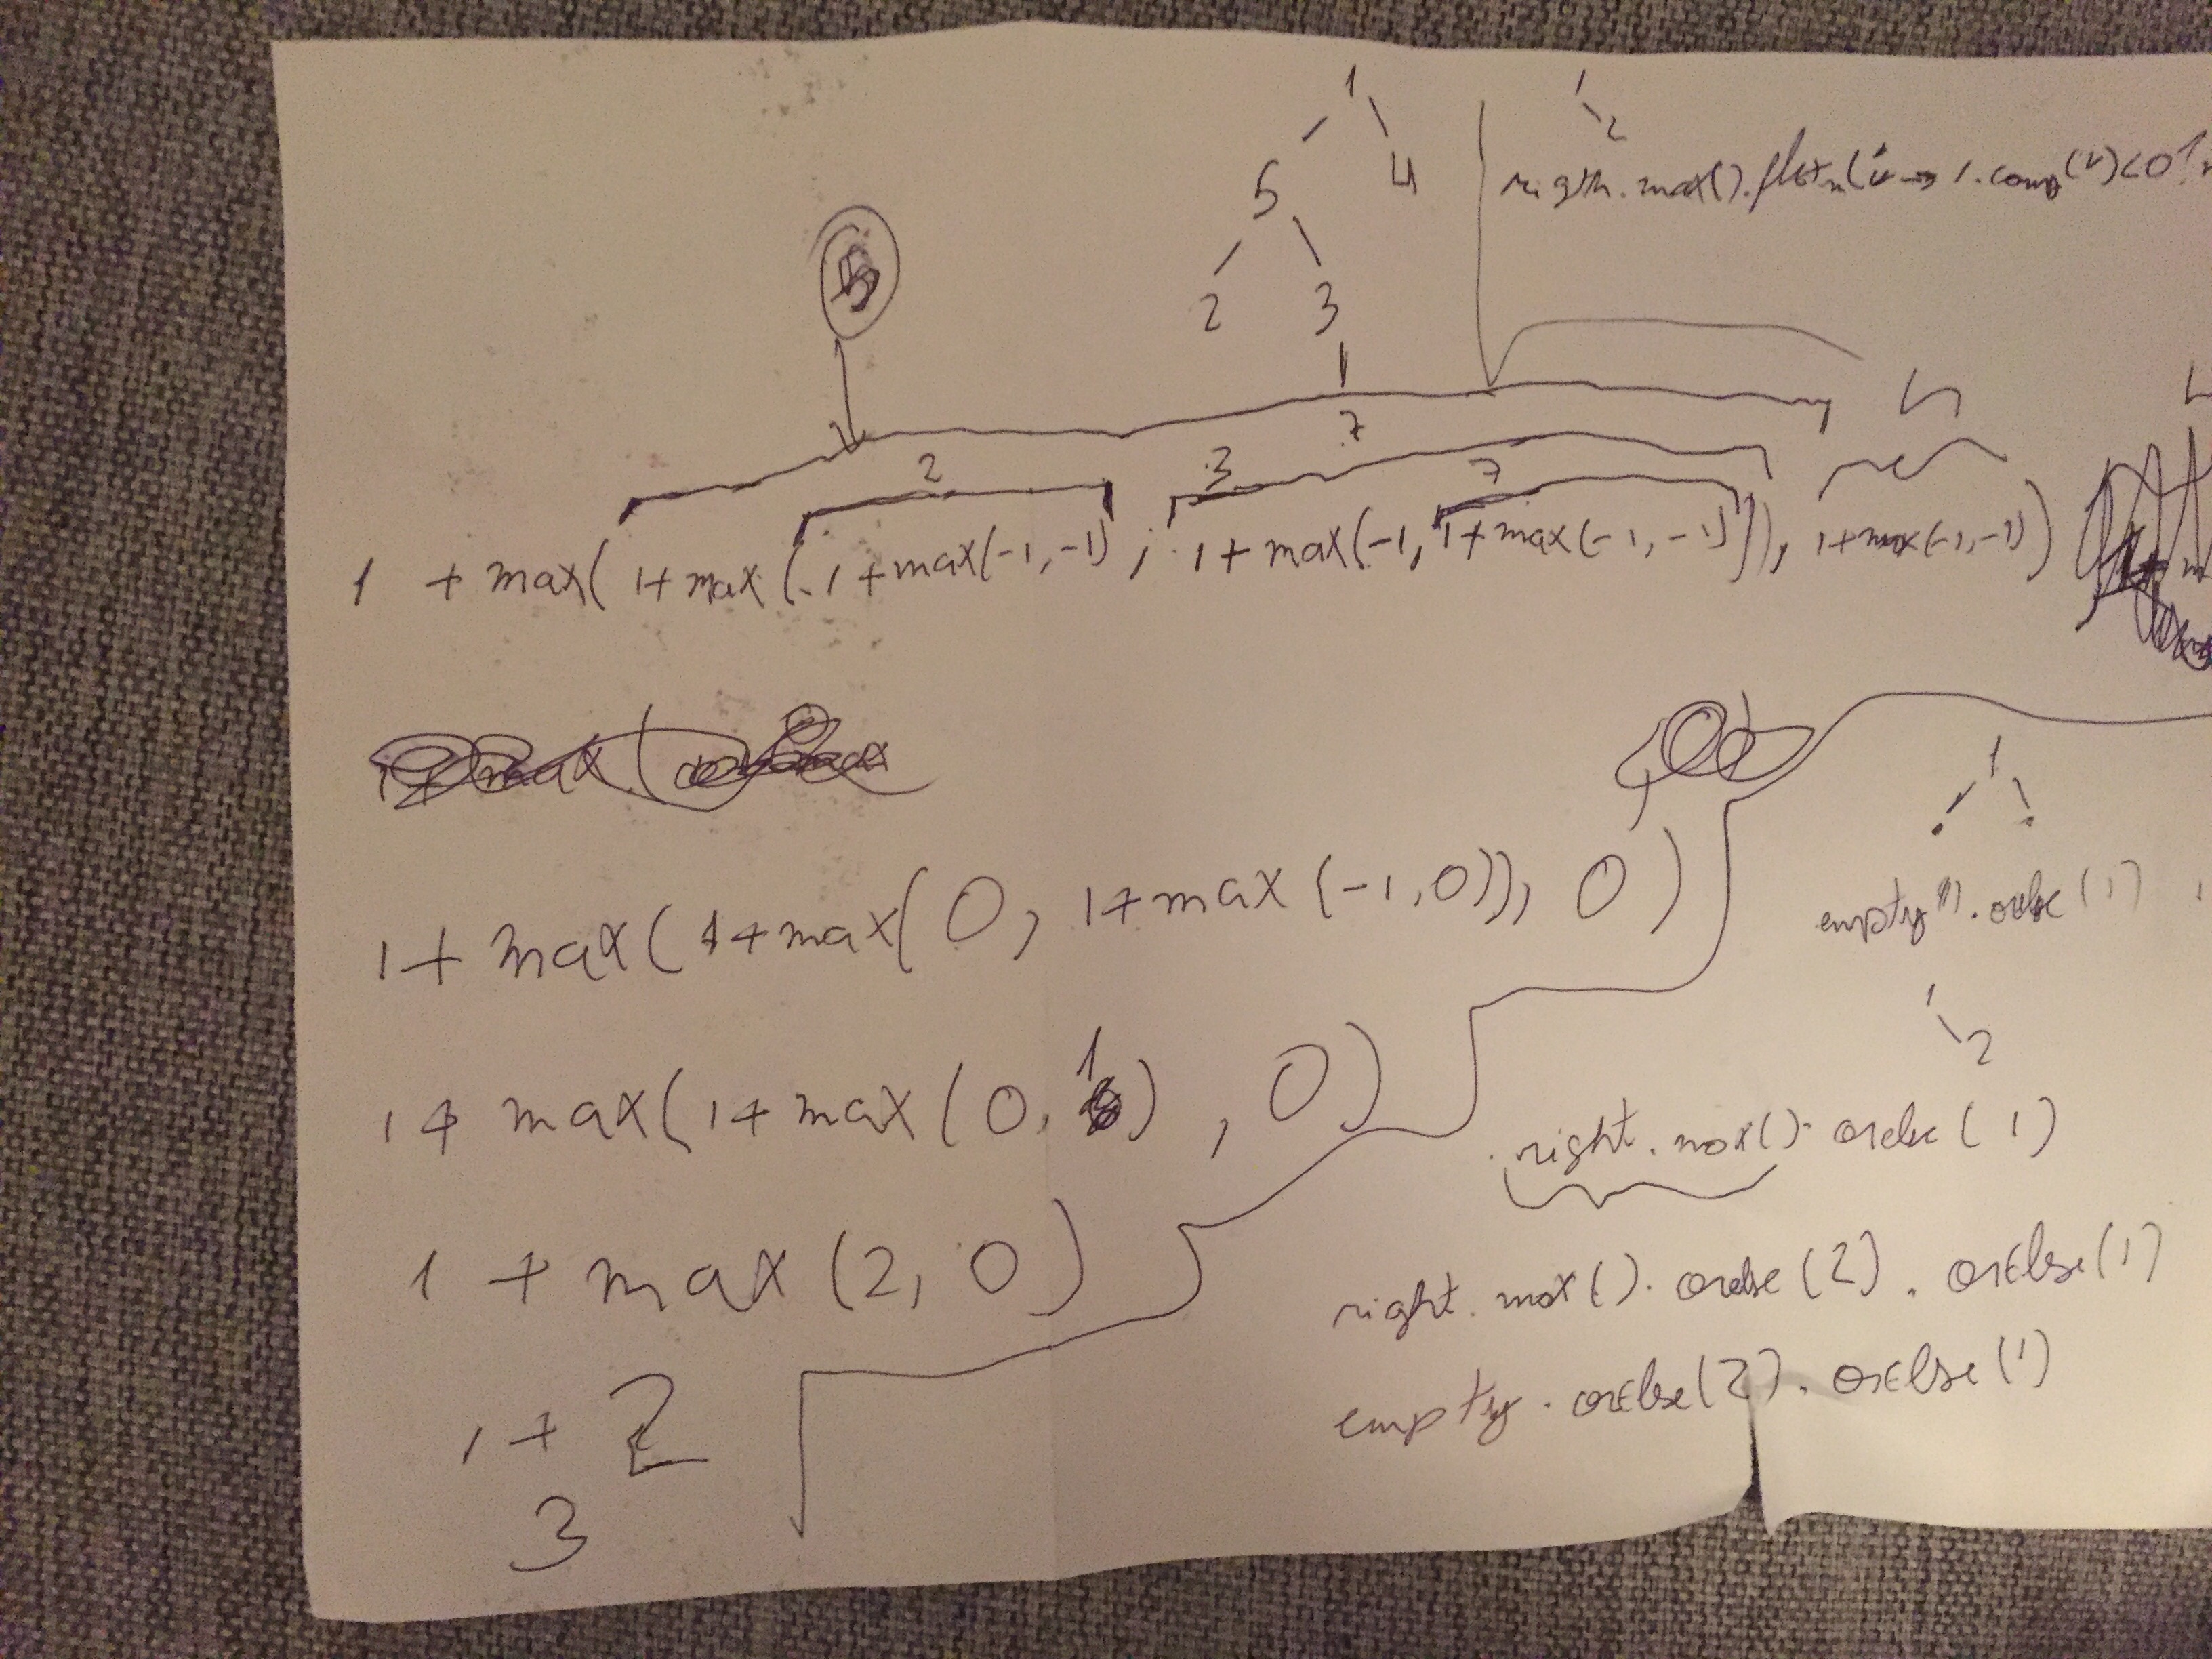 1
5 4
2 3
1
2
right.max().
5
7
2 3 7
1 + max(1+max(1+max(-1,-1), 1+max(-1,1+max(-1,-1))), 1+max(-1,-1))
1+max(
1+max(1+max(0, 1+max(-1,0)), 0)
1+max(1+max(0, 1), 0)
1 + max(2, 0)
1+2
3
1
empty .orelse(1)
1
2
right.max().orelse(1)
right.max().orelse(2).orElse(1)
empty.orElse(2).orElse(1)